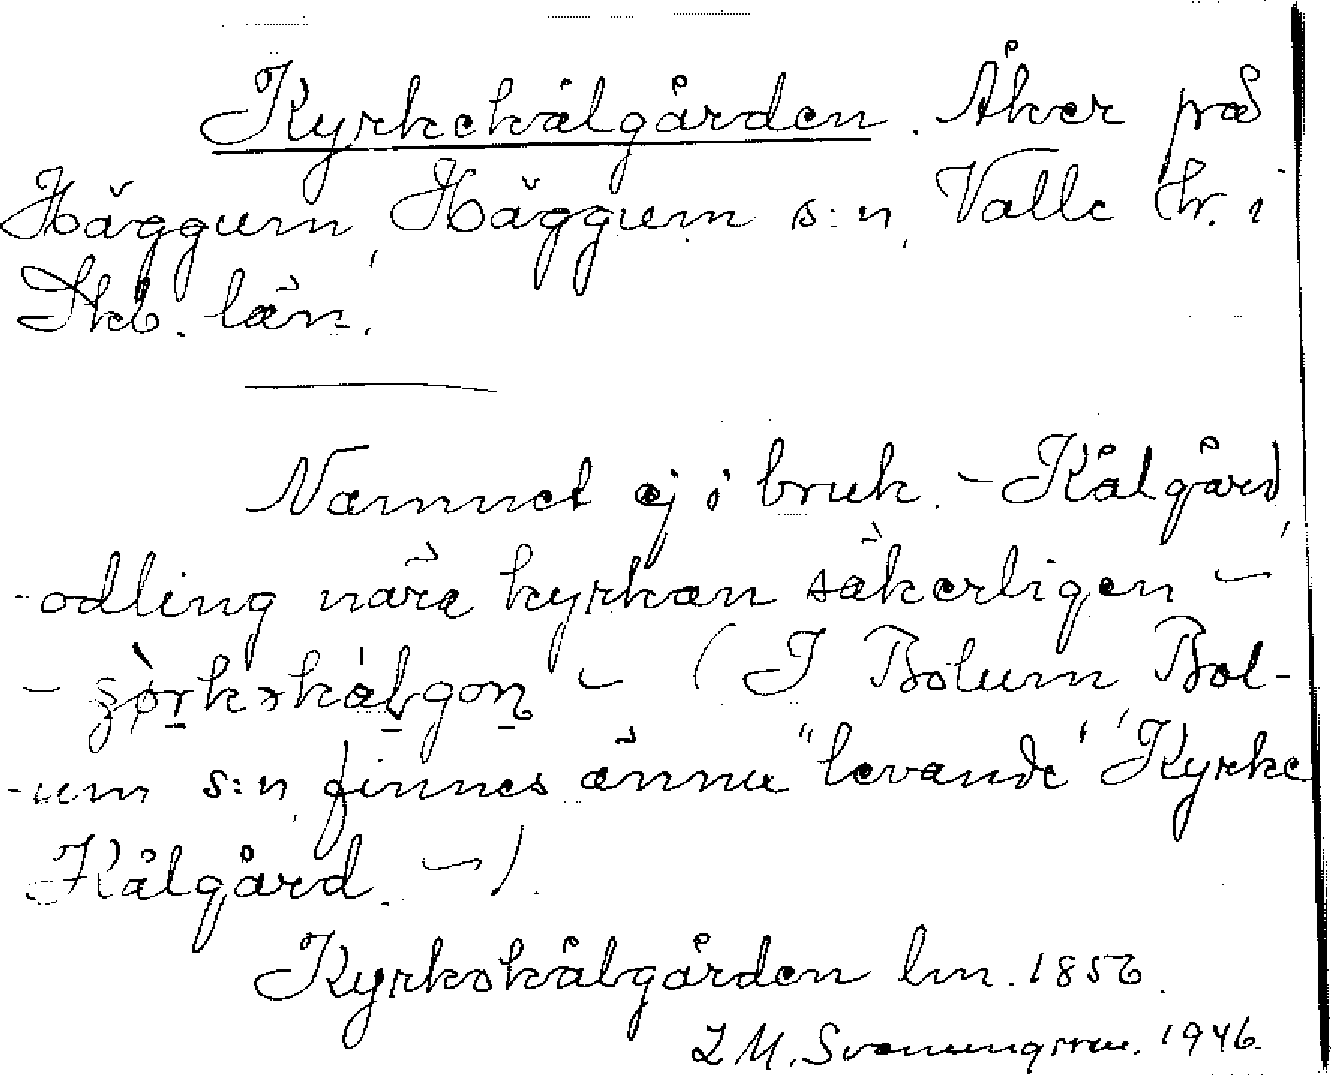 Kyrkekålgården. Åker på
Häggum, Häggum s:n, Valle hr. i
Skb. län.
Namnet ej i bruk. – Kålgård,
-odling nära kyrkan säkerligen –
– (I Bolum Bol-
-um s:n, finnes ännu "levande" Kyrke
Kålgård. –).
Kyrkokålgården lm. 1856.
L M. Svanungsson. 1946.